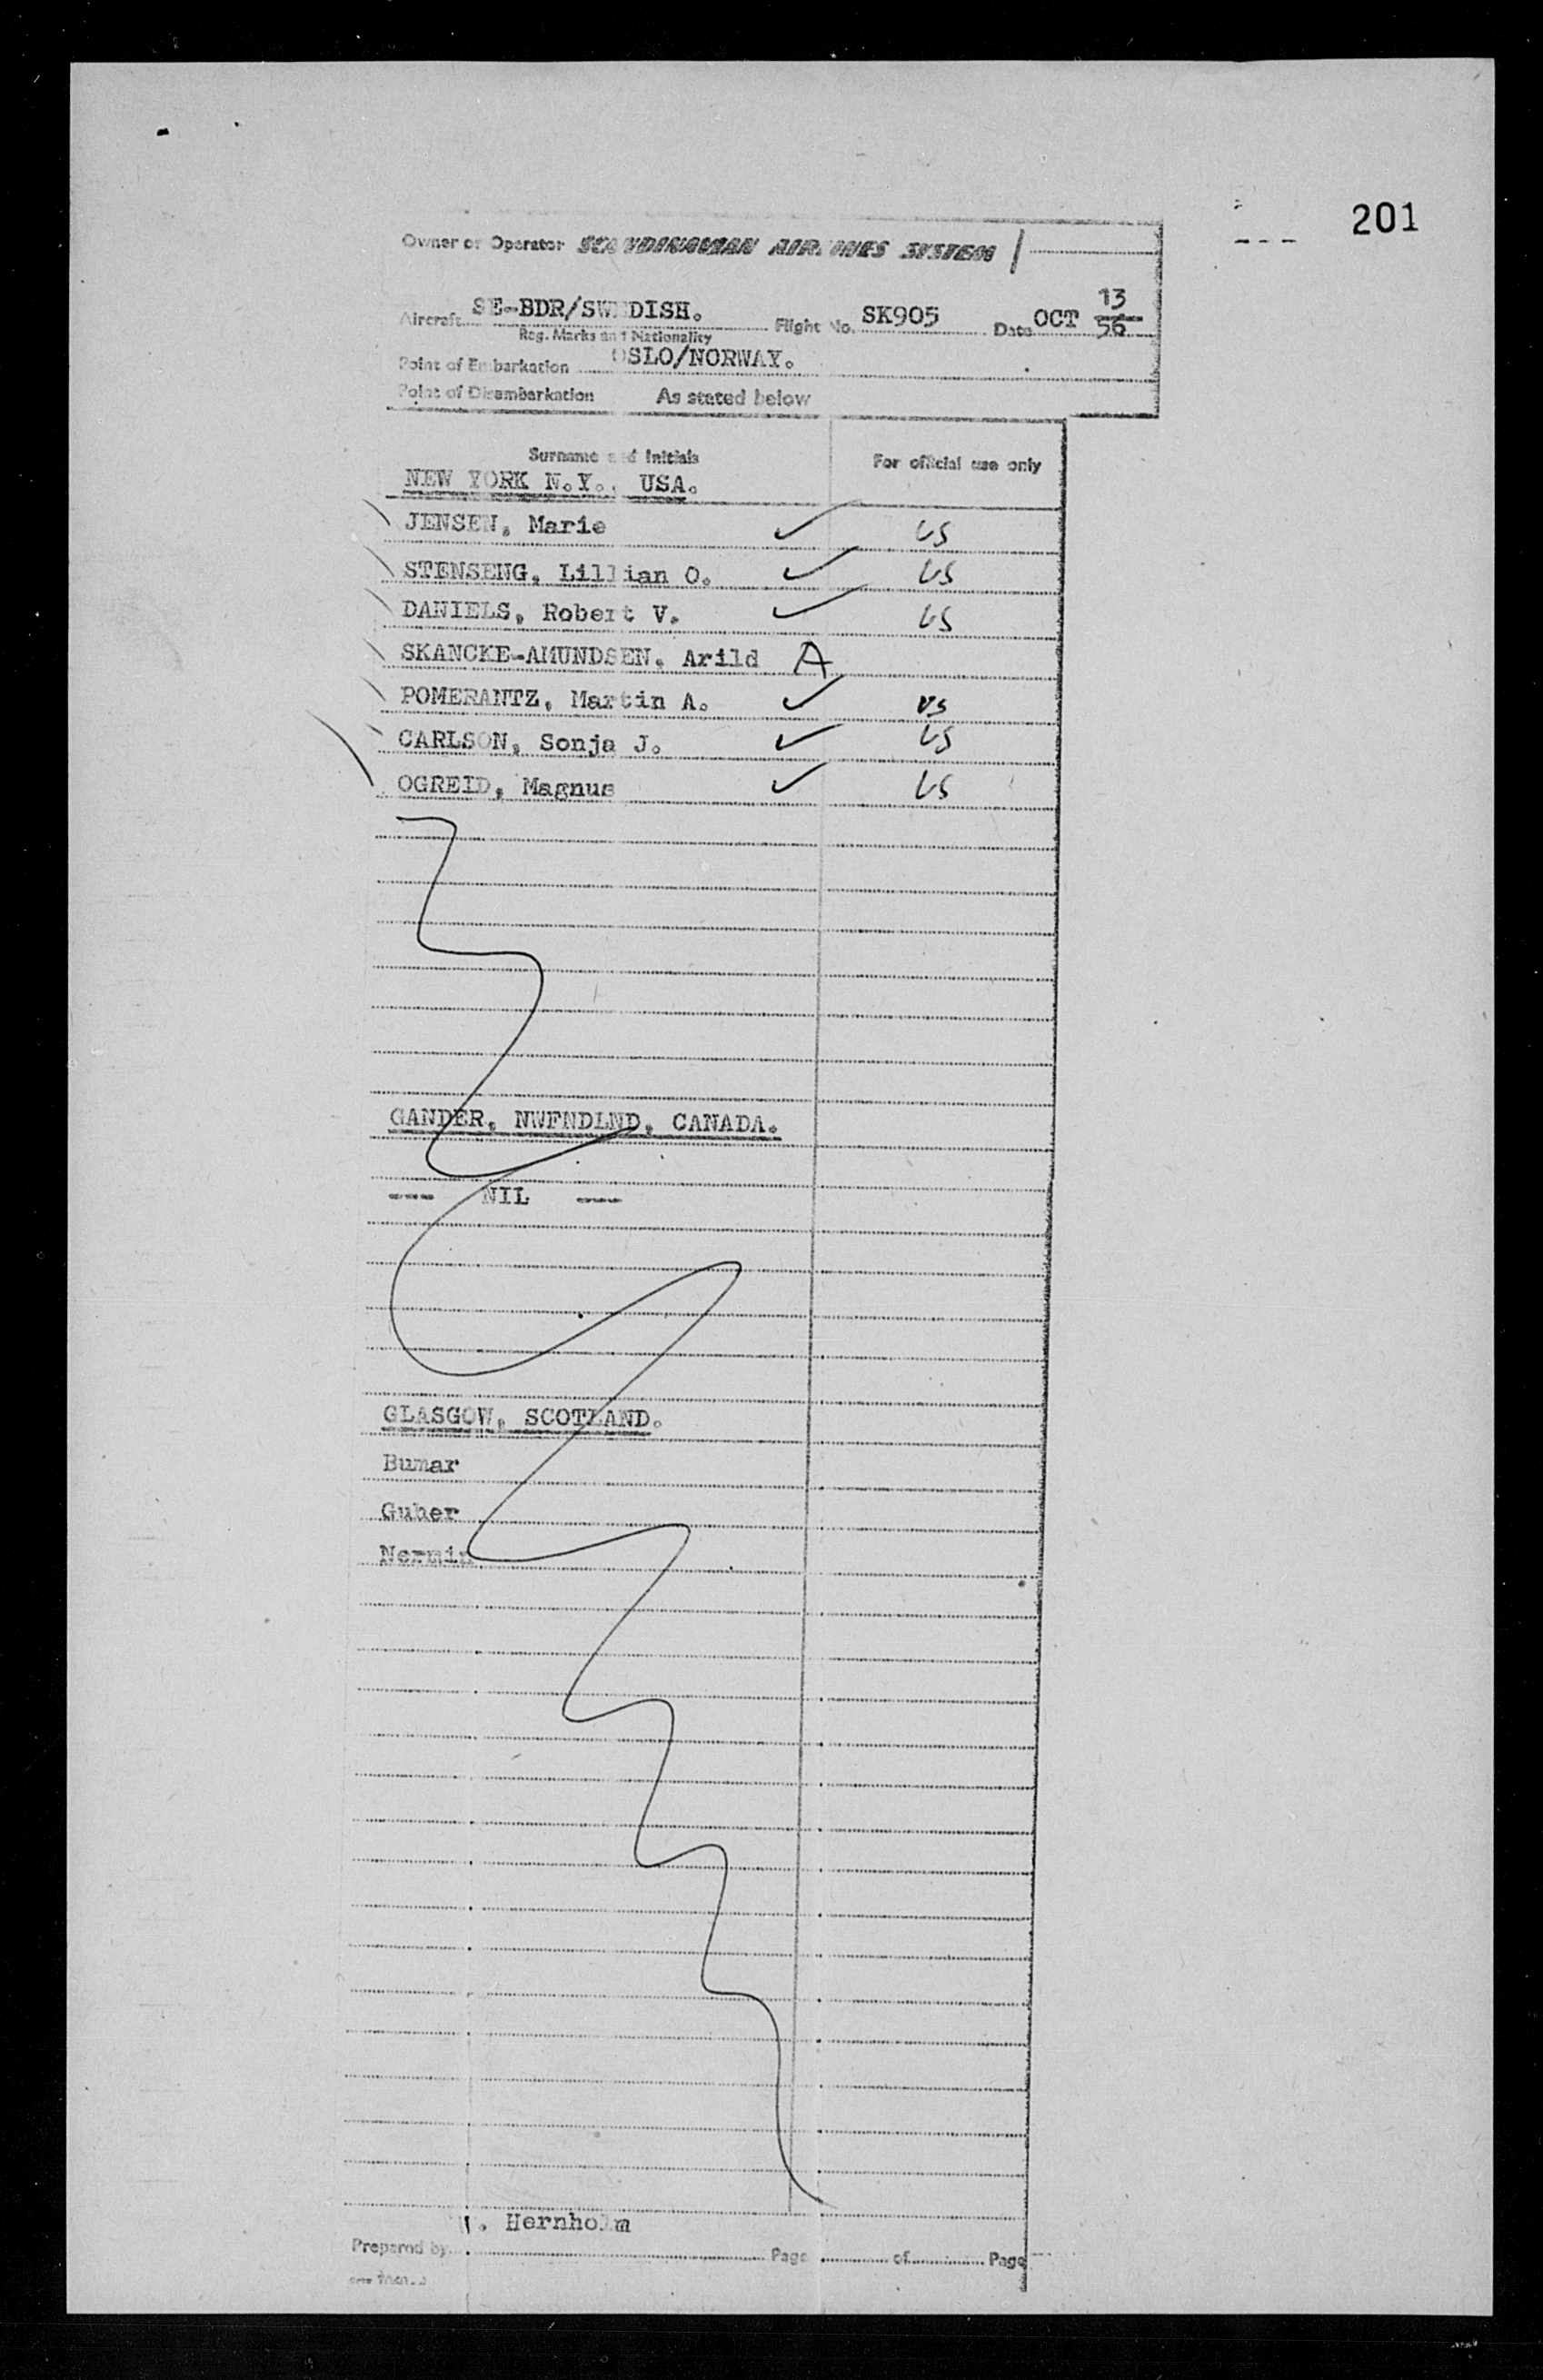 201
Owner or Operator SCANDINAVIAN AIRLINES SYSTEM
Aircraft SE-BDR/SWEDISH. Flight No. SK905 Date OCT 13 56
Reg. Marks and Nationality
Point of Embarkation OSLO/NORWAY.
Point of Disembarkation As stated below
Surname and Initials For official use only
NEW YORK N.Y., USA.
JENSEN, Marie ✓ US
STENSENG, Lillian O. ✓ US
DANIELS, Robert V. ✓ US
SKANCKE-AMUNDSEN, Arild A
POMERANTZ, Martin A. ✓ US
CARLSON, Sonja J. ✓ US
OGREID, Magnus ✓ US
GANDER, NWFNDLND, CANADA.
---- NIL ----
GLASGOW, SCOTLAND.
Bumar
Guher
Nermin
. Hernholm
Prepared by Page of Page